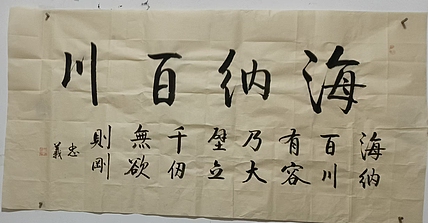 海納百川
海納
百川
有容
乃大
壁立
千仞
無欲
則剛
忠義